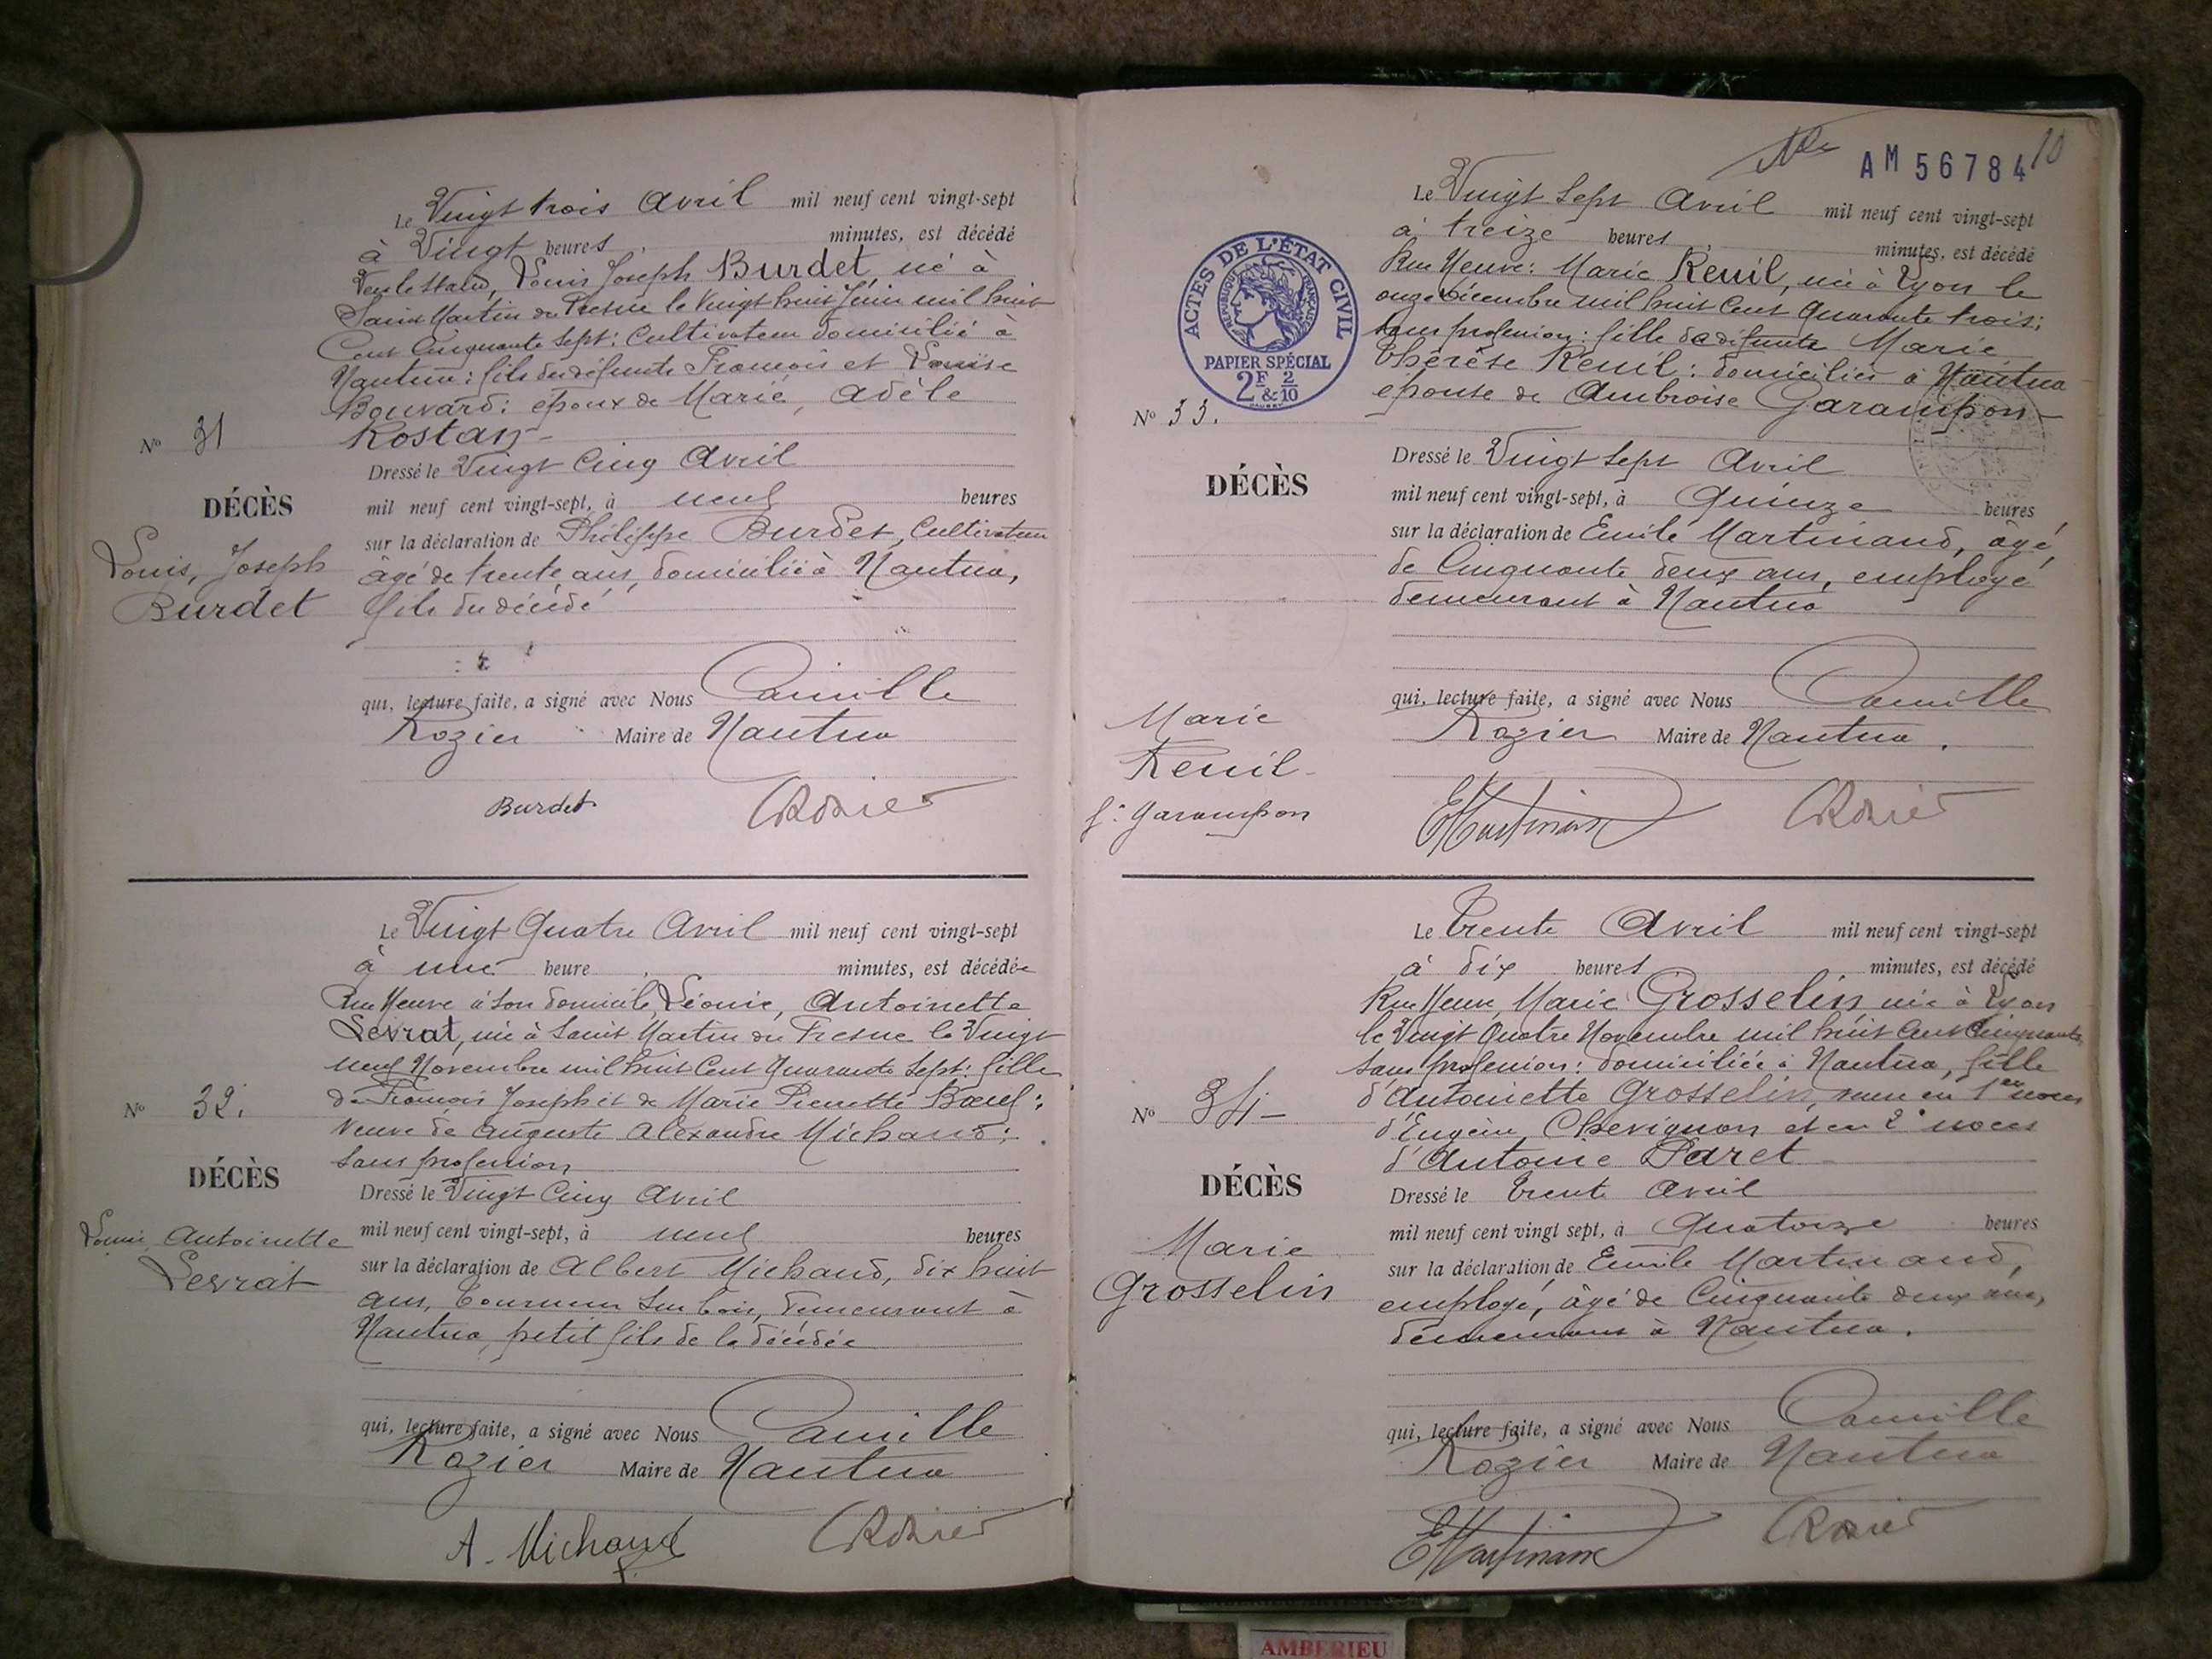 Le Vingt trois Avril mil neuf cent vingt-sept
à Vingt heures minutes, est décédé
Louis Joseph Burdet, né à
Saint Martin du Fresne le Vingt huit Juin mil huit
Cent Cinquante Sept: Cultivateur domicilié à
Nantua: fils de défunts François et Louise
Bouvard: époux de Marie, Adèle
Rostan-
Nº 31
DÉCÈS
Louis, Joseph
Burdet
Dressé le Vingt Cinq Avril
mil neuf cent vingt-sept, à neuf heures
sur la déclaration de Philippe Burdet, Cultivateur
âgé de trente ans, domicilié à Nantua,
fils du décédé
qui, lecture faite, a signé avec Nous Camille
Rozier Maire de Nantua
Burdet CRozier
Le Vingt Quatre Avril mil neuf cent vingt-sept
à une heure minutes, est décédée
Rue Neuve à son domicile, Léonie, Antoinette
Levrat, née à Saint Martin du Fresne le Vingt
neuf Novembre mil huit Cent Quarante Sept: fille
de François Joseph et de Marie Pierrette Bœuf:
Veuve de Auguste Alexandre Michaud:
Sans profession
Nº 32.
DÉCÈS
Léonie Antoinette
Levrat
Dressé le Vingt Cinq Avril
mil neuf cent vingt-sept, à neuf heures
sur la déclaration de Albert Michaud, dix huit
ans, Tourneur sur bois, demeurant à
Nantua, petit fils de la décédée
qui, lecture faite, a signé avec Nous Camille
Rozier Maire de Nantua
A. Michaud CRozier
AM 56784
10
ACTES DE L'ÉTAT CIVIL
RÉPUBLIQUE FRANÇAISE
PAPIER SPÉCIAL
2F & 2/10
Le Vingt Sept Avril mil neuf cent vingt-sept
à treize heures minutes, est décédé
Rue Neuve: Marie Reuil, née à Lyon le
onze Décembre mil huit Cent Quarante trois:
Sans profession: fille de défunte Marie
Thérèse Reuil: domiciliée à Nantua
épouse de Ambroise Garampon-
Nº 33.
DÉCÈS
Marie
Reuil-
f: Garampon
Dressé le Vingt Sept Avril
mil neuf cent vingt-sept, à Quinze heures
sur la déclaration de Emile Martinand, âgé
de Cinquante deux ans, employé
demeurant à Nantua
qui, lecture faite, a signé avec Nous Camille
Rozier Maire de Nantua.
EMartinand CRozier
Le Trente Avril mil neuf cent vingt-sept
à dix heures minutes, est décédé
Rue Neuve, Marie Grosselin née à Lyon
le Vingt Quatre Novembre mil huit Cent Cinquante
Sans profession: domiciliée à Nantua, fille
d'Antoinette Grosselin, veuve en 1er noces
d'Eugène Chevignon et en 2e noces
d'Antoine Paret
Nº 34-
DÉCÈS
Marie
Grosselin
Dressé le Trente Avril
mil neuf cent vingt sept, à Quatorze heures
sur la déclaration de Emile Martinand,
employé, âgé de Cinquante deux ans,
demeurant à Nantua.
qui, lecture faite, a signé avec Nous Camille
Rozier Maire de Nantua
EMartinand CRozier
AMBERIEU